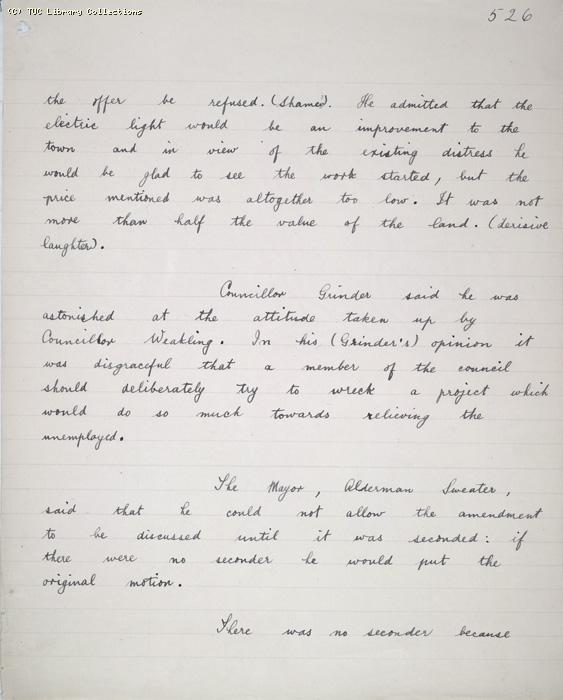 (C) TUC Library Collections
526
the offer be refused. (Shame). He admitted that the
electric light would be an improvement to the
town and in view of the existing distress he
would be glad to see the work started, but the
price mentioned was altogether too low. It was not
more than half the value of the land. (derisive
laughter).
Councillor Grinder said he was
astonished at the attitude taken up by
Councillor Weakling. In his (Grinder's) opinion it
was disgraceful that a member of the council
should deliberately try to wreck a project which
would do so much towards relieving the
unemployed.
The Mayor, Alderman Sweater,
said that he could not allow the amendment
to be discussed until it was seconded: if
there were no seconder he would put the
original motion.
There was no seconder because